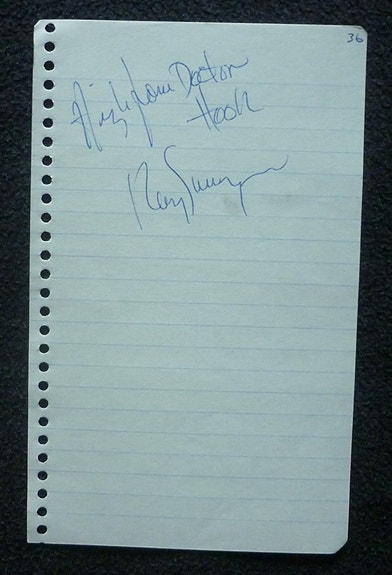 36
from Doctor
Hook
Ray Sawyer